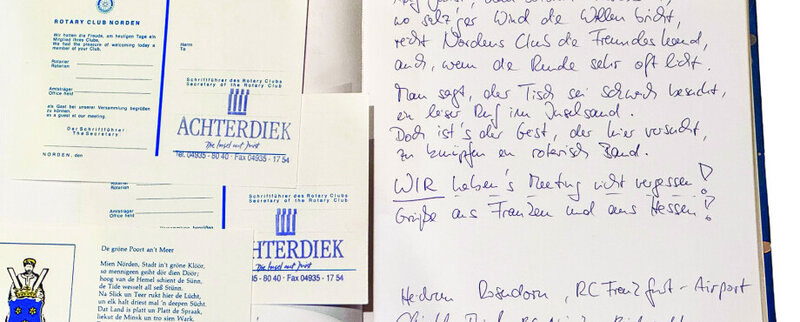 ROTARY CLUB NORDEN
Wir hatten die Freude, am heutigen Tage ein
Mitglied Ihres Clubs,
We had the pleasure of welcoming today a
member of your Club,
Rotarier
Rotarian
Amtsträger
Office held
als Gast bei unserer Versammlung begrüßen
zu können.
as a guest at our meeting.
Der Schriftführer
The Secretary
NORDEN, den
Herrn
To
Schriftführer des Rotary Clubs
Secretary of the Rotary Club
ACHTERDIEK
Die Insel auf Juist
Tel. 04935 - 80 40 · Fax 04935 - 17 54
Amtsträger
Office held
Schriftführer des Rotary Clubs
Secretary of the Rotary Club
ACHTERDIEK
Die Insel auf Juist
Tel. 04935 - 80 40 · Fax 04935 - 17 54
De gröne Poort an't Meer
Mien Nörden, Stadt in't gröne Klöör,
so mennigeen geiht dör dien Döör;
hoog van Hemel schient de Sünn,
de Tide werselt all seß Stünn.
Na Slick un Teer rukt hier de Lücht,
un elk halt driest mal 'n deepen Sücht.
Dat Land is platt un Platt de Spraak,
liekut de Minsk un tro sien Wark.
wo salz'ger Wind die Wellen bricht,
reicht Nordens Club die Freundeshand,
auch, wenn die Runde sehr oft licht.
Man sagt, der Tisch sei schwach besucht,
ein leiser Ruf im Inselsand.
Doch ist's der Geist, der hier versucht,
zu knüpfen ein rotarisch Band.
WIR haben's Meeting nicht vergessen!
Grüße aus Franken und aus Hessen!
Rosendorn, RC Frankfurt-Airport